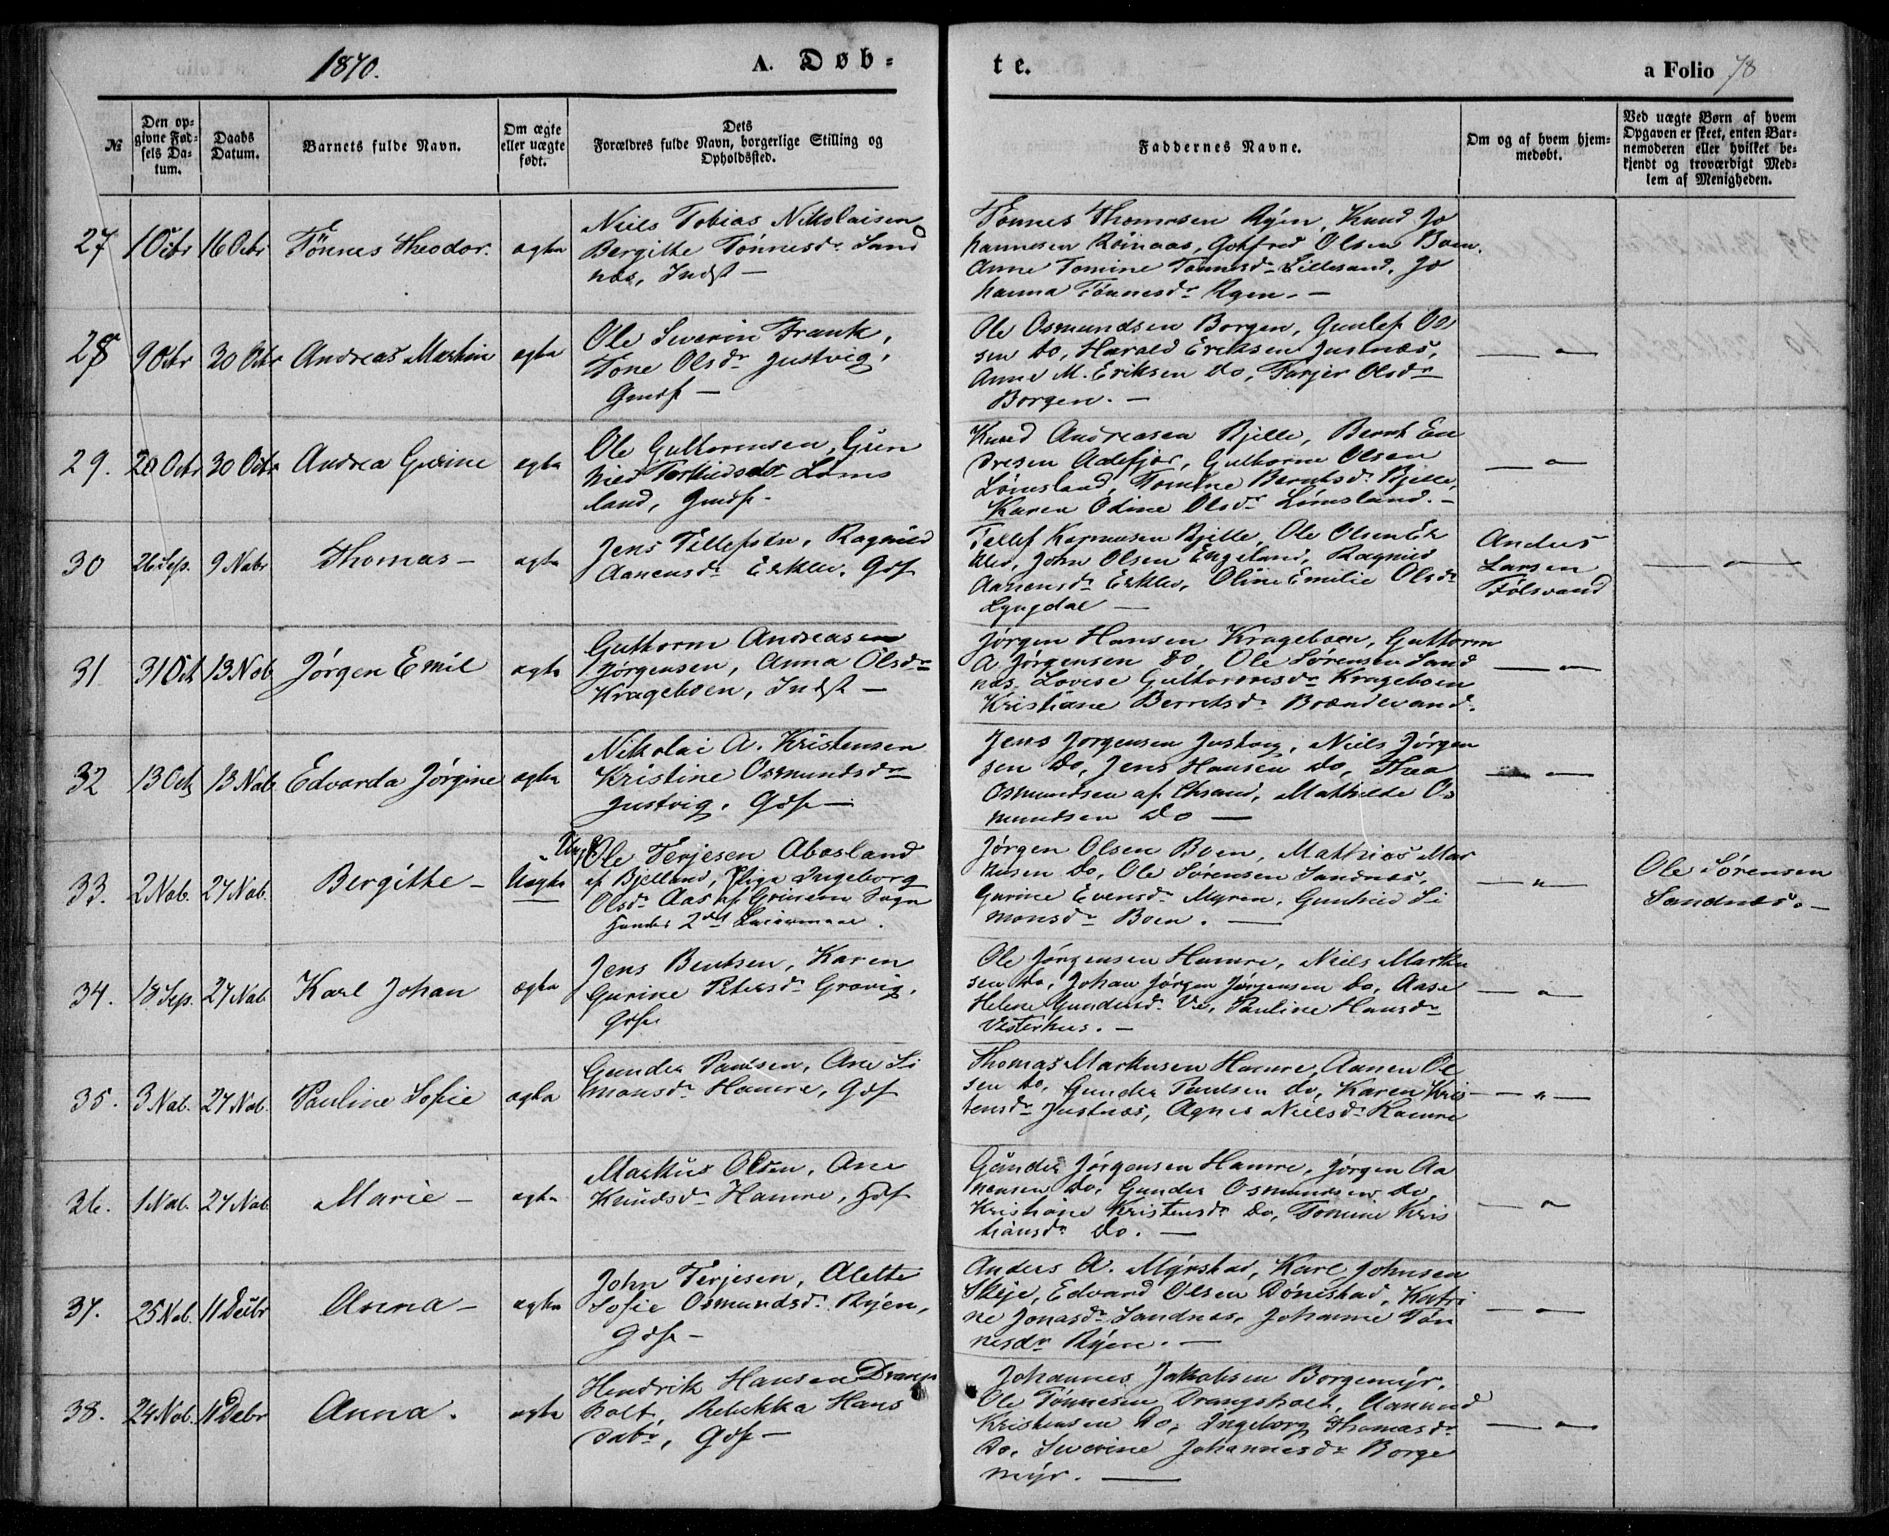 1870.
A. Døb-
te.
a Folio 78
№
Den op-
givne Fød-
sels Da-
tum.
Daabs
Datum.
Barnets fulde Navn.
Om ægte
eller uægte
født.
Dets
Forældres fulde Navn, borgerlige Stilling og
Opholdssted.
Faddernes Navne.
Om og af hvem hjem-
medøbt.
Ved uægte Børn af hvem
Opgaven er skeet, enten Bar-
nemoderen eller hvilket be-
kjendt og troværdigt Med-
lem af Menigheden.
27 1 Octbr 16 Octbr Tønnes Theodor. ægte
Niels Tobias Nikolaisen
Bergitte Tønnesdr Sand
næs, Indst —
Tønnes Thomesen Ryen, Knud Jo
hannesen Røinaas, Gotfred Olsen Boen.
Anne Tomine Tønnesdr Lillesand, Jo
hanna Tønnesdr Ryen. —
28 9 Octbr 30 Octbr Andreas Martin ægte
Ole Severin Frank,
Tone Olsdr Justvig,
Gmdsf —
Ole Osmundsen Borgen, Gunlef Ol
sen do, Harald Eriksen Justnæs,
Anne M. Eriksen Do, Tarjer Olsdr
Borgen. —
— " —
29. 20 Octbr 30 Octbr Andrea Gurine ægte
Ole Guttormsen, Gun
nied Torkildsdr Løms
land, Gmdsf. —
Knud Andreasen Bjelle, Bernt En
dresen Aalefjær, Guttorm Olsen
Lømsland, Tomine Berntsdr Bjelle,
Karen Odine Olsdr Lømsland. —
— " —
30 26 Sep. 9 Nabr Thomas — ægte
Jens Tellefsen, Ragnild
Aanensdr Erklev, Gdsf
Tellef Rasmusen Bjelle, Ole Olsen Er
klev, John Olsen Engeland, Ragnied
Aanensdr Erklev, Oline Emilie Olsdr
Lyngdal —
Anders
Larsen
Følsvand
— " —
31 31 Oct 13 Nob. Jørgen Emil ægte
Guttorm Andreasen
Jørgensen, Anna Olsdr
Krageboen, Indst —
Jørgen Hansen Krageboen, Guttorm
A Jørgensen Do, Ole Sørensen Sand
næs, Lovise Guttormsdr Krageboen
Kristiane Berntsdr Brændevand.
— " —
32 13 Oct. 13 Nob. Edvarda Jørgine ægte
Nikolai A. Kristensen
Kristine Osmundsdr
Justvig. Gdsf —
Jens Jørgensen Justvig, Niels Jørgen
sen Do, Jens Hansen Do, Thea
Osmundsen af Chrsand, Mathilde Os
mundsen Do —
— " —
33. 2 Nob. 27 Nob. Bergitte — Uægte
Ungk Ole Terjesen Abosland
af Bjelland, Pige Ingeborg
Olsdr Aas af Grinem Sogn
Hendes 2det Leiermaal.
Jørgen Olsen Boen, Mathias Mar
kusen Do, Ole Sørensen Sandnæs,
Gurine Evensdr Myren, Gunhild Si
monsdr Boen. —
— " —
Ole Sørensen
Sandnæs. —
34. 18 Sep. 27 Nob. Karl Johan ægte
Jens Bentsen, Karen
Gurine Petersdr Grovig,
Gdsf.
Ole Jørgensen Hamre, Niels Marku
sen Do, Johan Jørgen Jørgensen Do, Aase
Helene Gundersdr Ve, Pauline Hansdr
Vesterhus. —
— " —
35. 3 Nob. 27 Nob. Pauline Sofie ægte
Gunder Paulsen, Ane Si
monsdr Hamre, Gdsf
Thomas Markusen Hamre, Aanen Ol
sen Do, Gunder Paulsen Do, Karen Kris
tensdr Justnæs, Agnes Nielsdr Hamre
— " —
36. 1 Nob. 27 Nob. Marie — ægte
Markus Olsen, Ane
Knudsdr Hamre, Gdsf
Gunder Jørgensen Hamre, Jørgen Aa
nensen Do, Gunder Osmundsen Do,
Kristiane Kristensdr Do, Tomine Kris
tiansdr Do. —
— " —
37. 25 Nob. 11 Decbr Anna — ægte
John Terjesen, Alette
Sofie Osmundsdr Ryen,
Gdsf —
Anders A. Myrstad, Karl Johnsen
Skeje, Edvard Olsen Dønestad, Katri
ne Jonasdr Sandnæs, Johanne Tøn
nesdr Ryen. —
— " —
38. 24 Nob. 11 Decbr Anna. ægte
Hendrik Hansen Drangs
holt, Rebekka Hans
datr, Gdsf —
Johannes Jakobsen Borgemyr,
Ole Tønnesen Drangsholt, Aamund
Kristensen Do, Ingeborg Thomasdr
Do, Severine Johannesdr Borge
myr. —
— " —